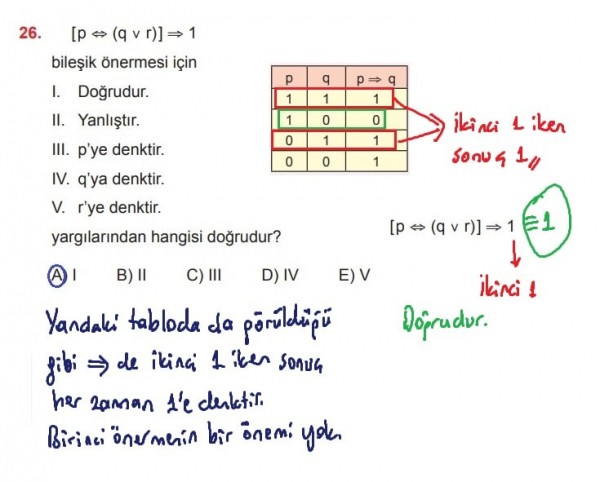 26. [p ⇔ (q ∨ r)] ⇒ 1
bileşik önermesi için
I. Doğrudur.
II. Yanlıştır.
III. p'ye denktir.
IV. q'ya denktir.
V. r'ye denktir.
yargılarından hangisi doğrudur?
A) I B) II C) III D) IV E) V
p q p ⇒ q
1 1 1
1 0 0
0 1 1
0 0 1
İkinci 1 iken
sonuç 1,,
[p ⇔ (q ∨ r)] ⇒ 1 ≡ 1
İkinci 1
Doğrudur.
Yandaki tabloda da görüldüğü
gibi ⇒ de ikinci 1 iken sonuç
her zaman 1'e denktir.
Birinci önermenin bir önemi yok.